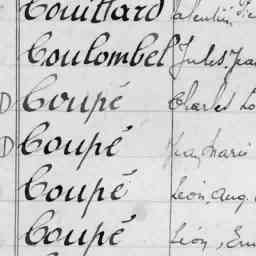 Couillard Valentin
Coulombel Jules
D Coupé Charles
D Coupé Marie
Coupé Léon, Aug.
Coupé Léon,